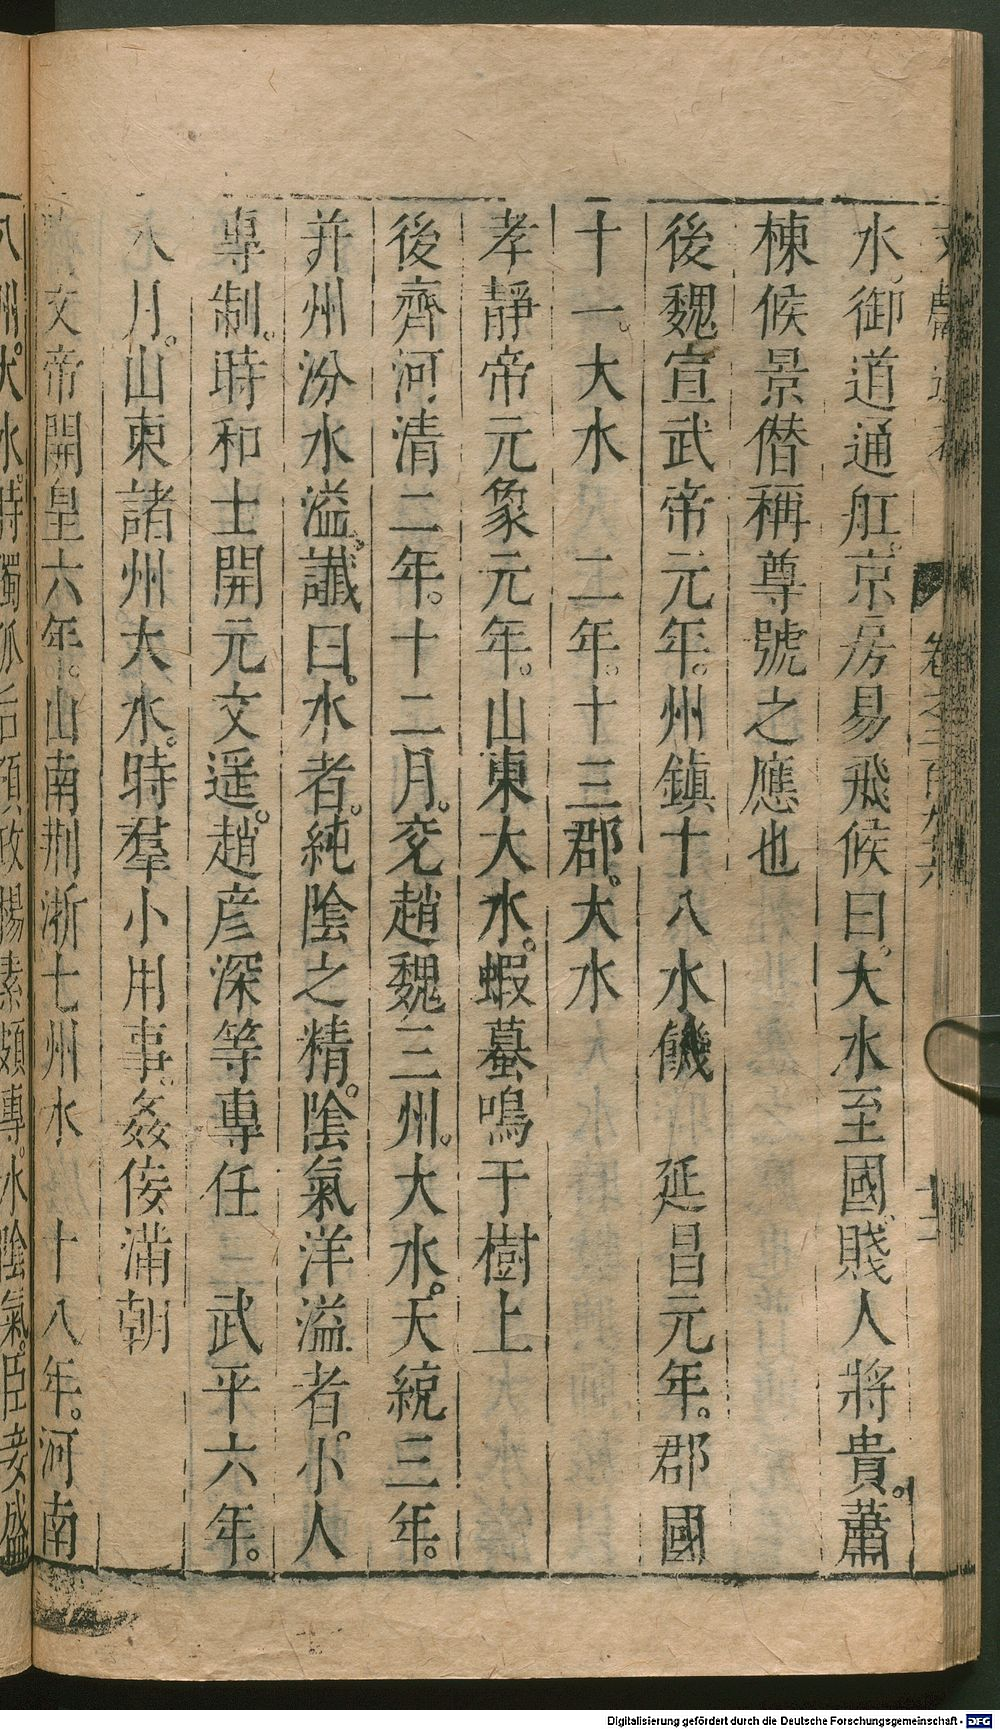 水。御道通舡。京房易飛候曰。大水至國。賤人將貴。蕭
棟候景僣稱尊號之應也
後魏宣武帝元年。州鎮十八水饑 延昌元年。郡國
十一。大水 二年。十三郡。大水
孝靜帝元象元年。山東大水。蝦蟇鳴于樹上
後齊河清二年。十二月。兗趙魏三州。大水。天統三年。
并州汾水溢。讖曰。水者。純陰之精。陰氣洋溢者。小人
專制。時和士開元文遥。趙彦深等專任 武平六年。
八月。山東諸州大水。時羣小用事。姦佞滿朝
文帝開皇六年。山南荆淅七州水 十八年。河南
八州。大水。時獨孤后預政楊素顓專。水陰氣。臣妾盛
Digitalisierung gefördert durch die Deutsche Forschungsgemeinschaft - DFG